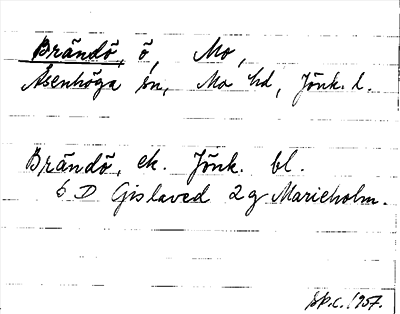 Brändö, ö, Mo,
Åsenhöga sn, Mo hd, Jönk. l.
Brändö, ek. Jönk. bl.
6 D Gislaved 2 g Marieholm.
1957.